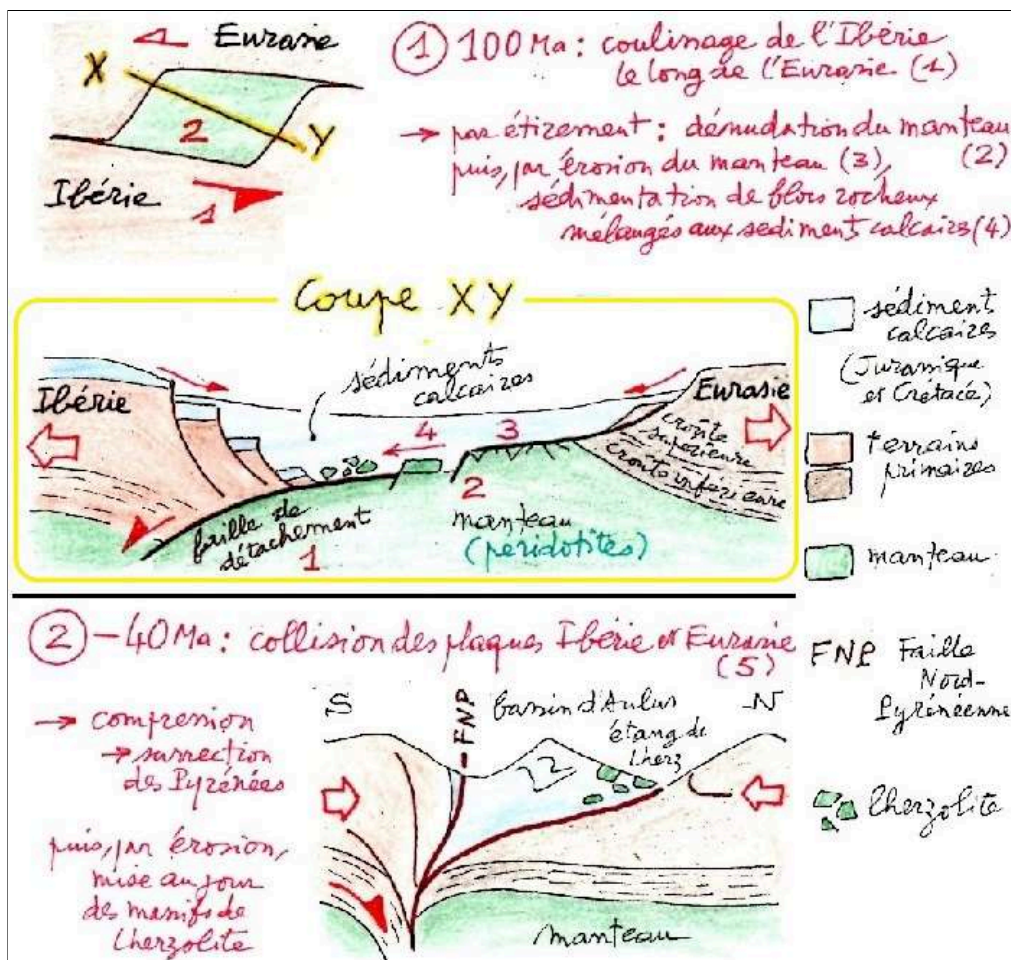 Eurasie
X
2
Y
Ibérie
1
① 100 Ma : coulissage de l'Ibérie
le long de l'Eurasie (1)
→ par étirement : dénudation du manteau
(2)
puis, par érosion du manteau (3),
sédimentation de blocs rocheux
mélangés aux sédiments calcaires (4)
Coupe XY
Ibérie
sédiments
calcaires
Eurasie
croûte
supérieure
croûte inférieure
4
3
2
manteau
(péridotites)
faille de
détachement
1
sédiments
calcaires
(Jurassique
et Crétacé)
terrains
primaires
manteau
② -40 Ma : collision des plaques Ibérie et Eurasie
(5)
→ compression
→ surrection
des Pyrénées
puis, par érosion,
mise au jour
des massifs de
lherzolite
S
FNP
bassin d'Aulus
étang de
Lherz
N
manteau
FNP Faille
Nord-
Pyrénéenne
lherzolite